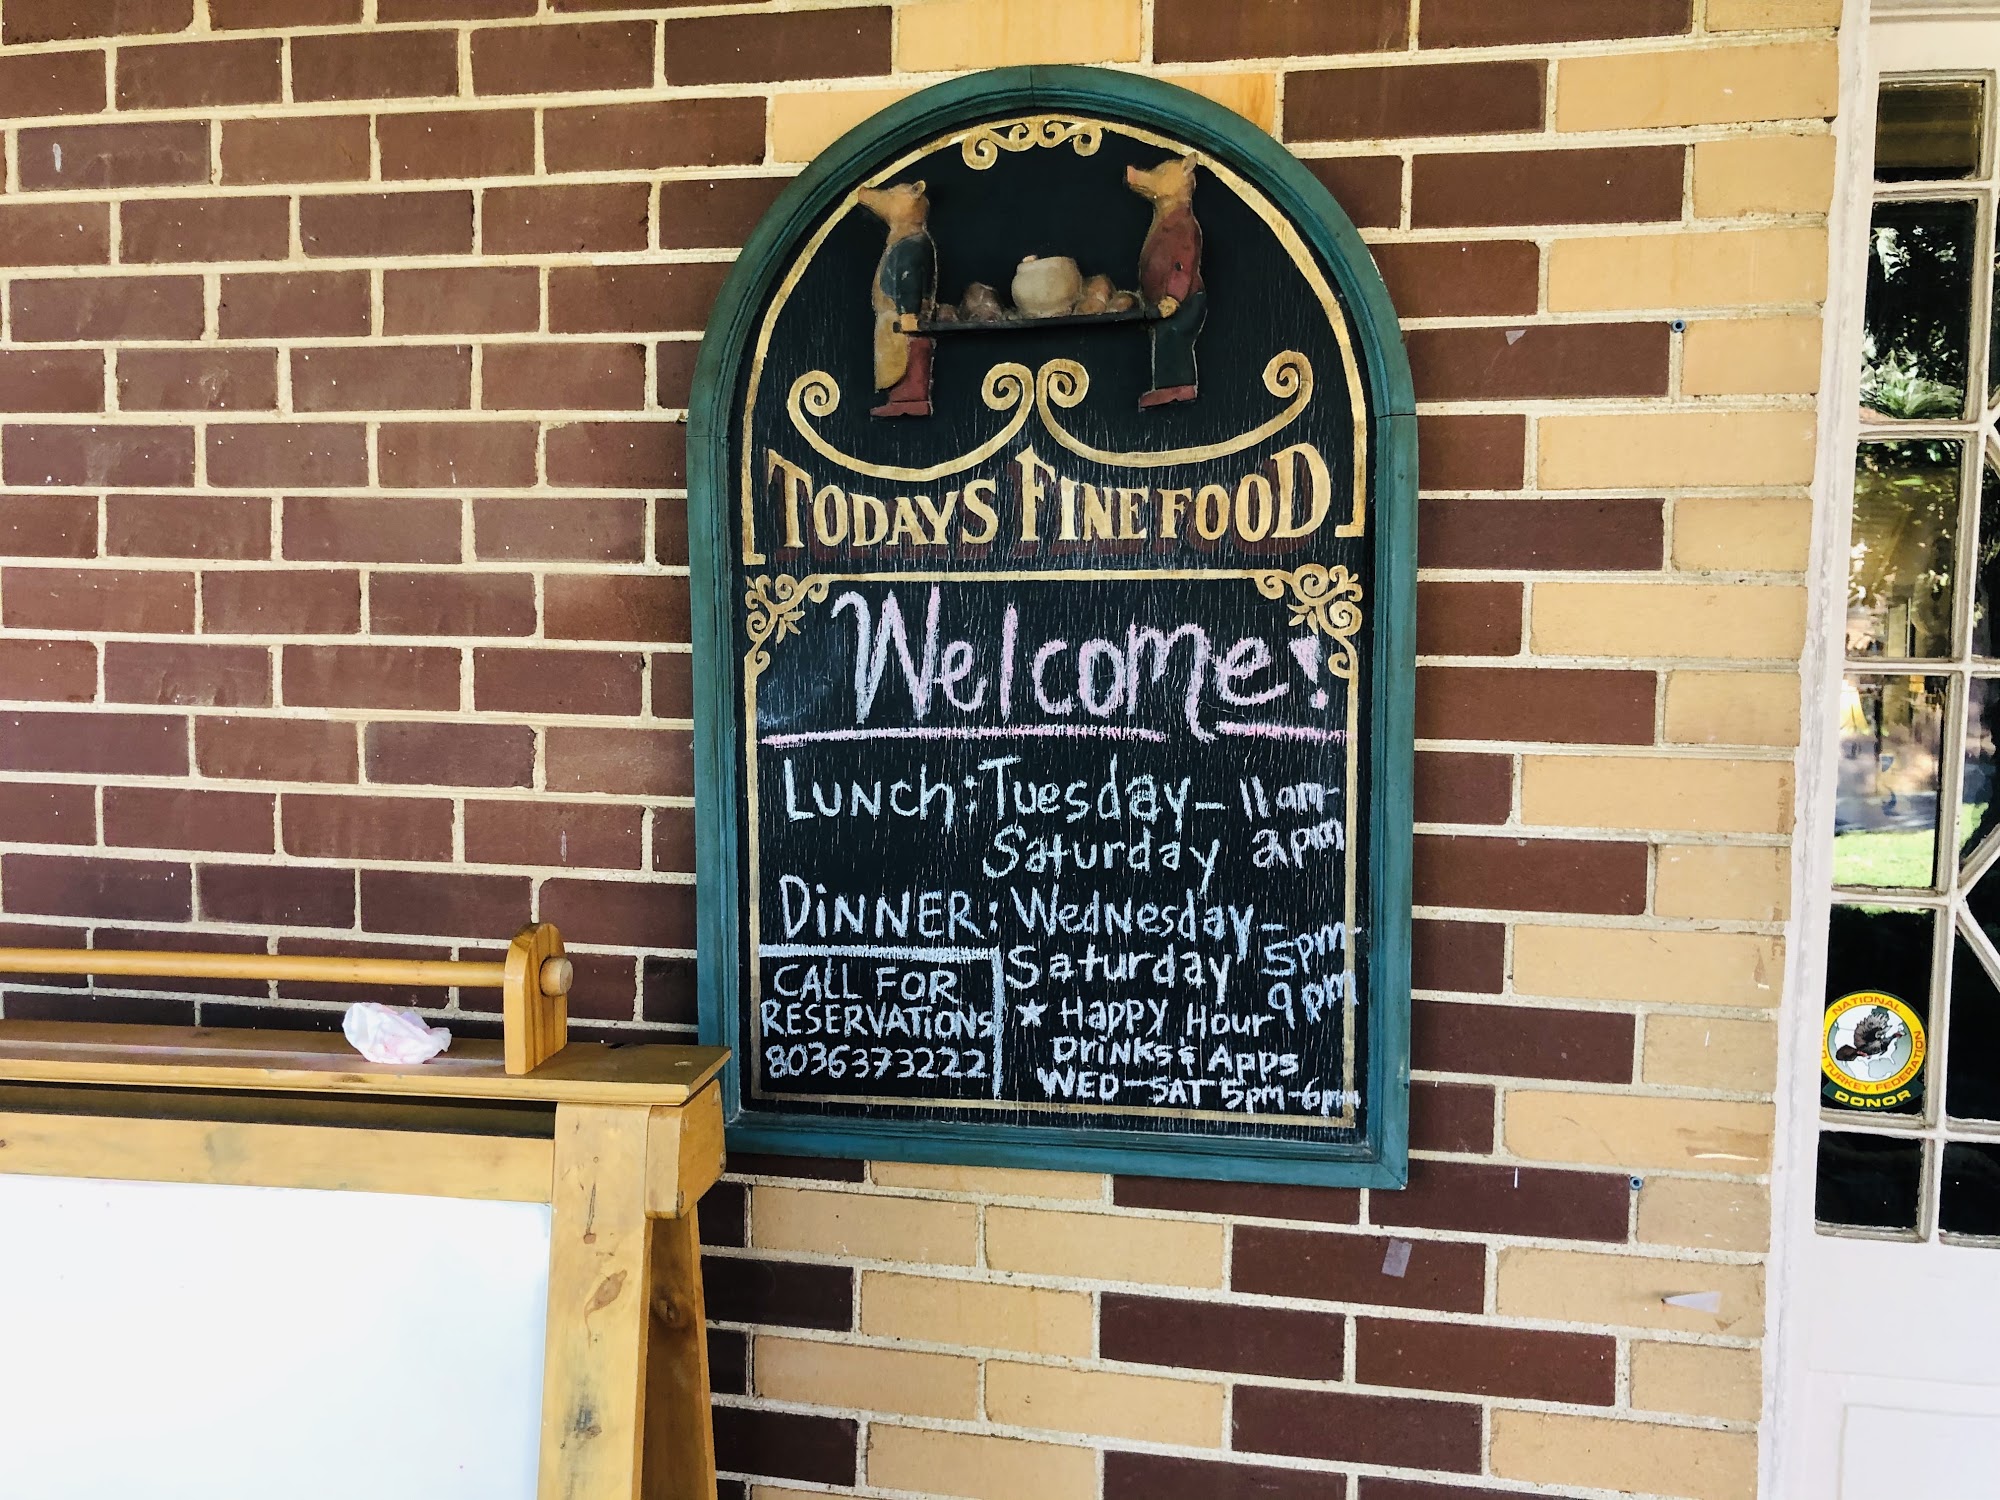 TODAYS FINE FOOD
Welcome!
LUNCH: Tuesday - 11am-
Saturday 2pm
DINNER: Wednesday -
Saturday 5pm-
9pm
CALL FOR
RESERVATIONS
8036373222
★ Happy Hour
Drinks & Apps
WED-SAT 5pm-6pm
NATIONAL
WILD TURKEY FEDERATION
DONOR